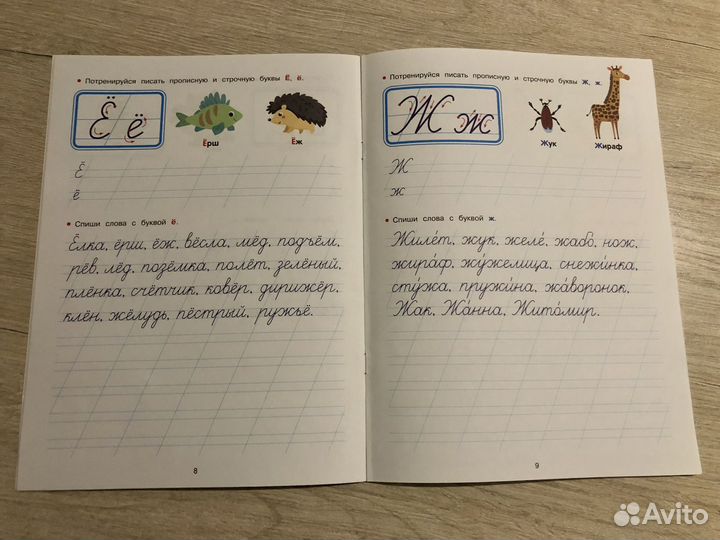 • Потренируйся писать прописную и строчную буквы Ё, ё.
Ё ё
Ёрш
Ёж
Ё
ё
• Спиши слова с буквой ё.
Ёлка, ёрш, ёж, вёсла, мёд, подъём,
рёв, лёд, позёмка, полёт, зелёный,
плёнка, счётчик, ковёр, дирижёр,
клён, жёлудь, пёстрый, ружьё.
8
• Потренируйся писать прописную и строчную буквы Ж, ж.
Ж ж
Жук
Жираф
Ж
ж
• Спиши слова с буквой ж.
Жиле́т, жук, желе́, жабо́, нож,
жира́ф, жу́желица, снежи́нка,
сту́жа, пружи́на, жа́воронок,
Жак, Жа́нна, Жито́мир.
9
Avito